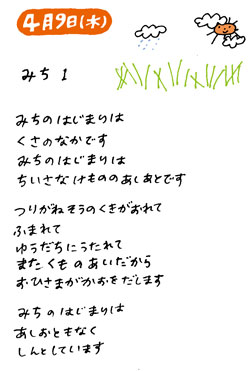 4月9日(水)
みち 1
みちのはじまりは
くさのなかです
みちのはじまりは
ちいさなけもののあしあとです
つりがねそうのくきがおれて
ふまれて
ゆうだちにうたれて
またくものあいだから
おひさまがかおをだします
みちのはじまりは
あしおともなく
しんとしています